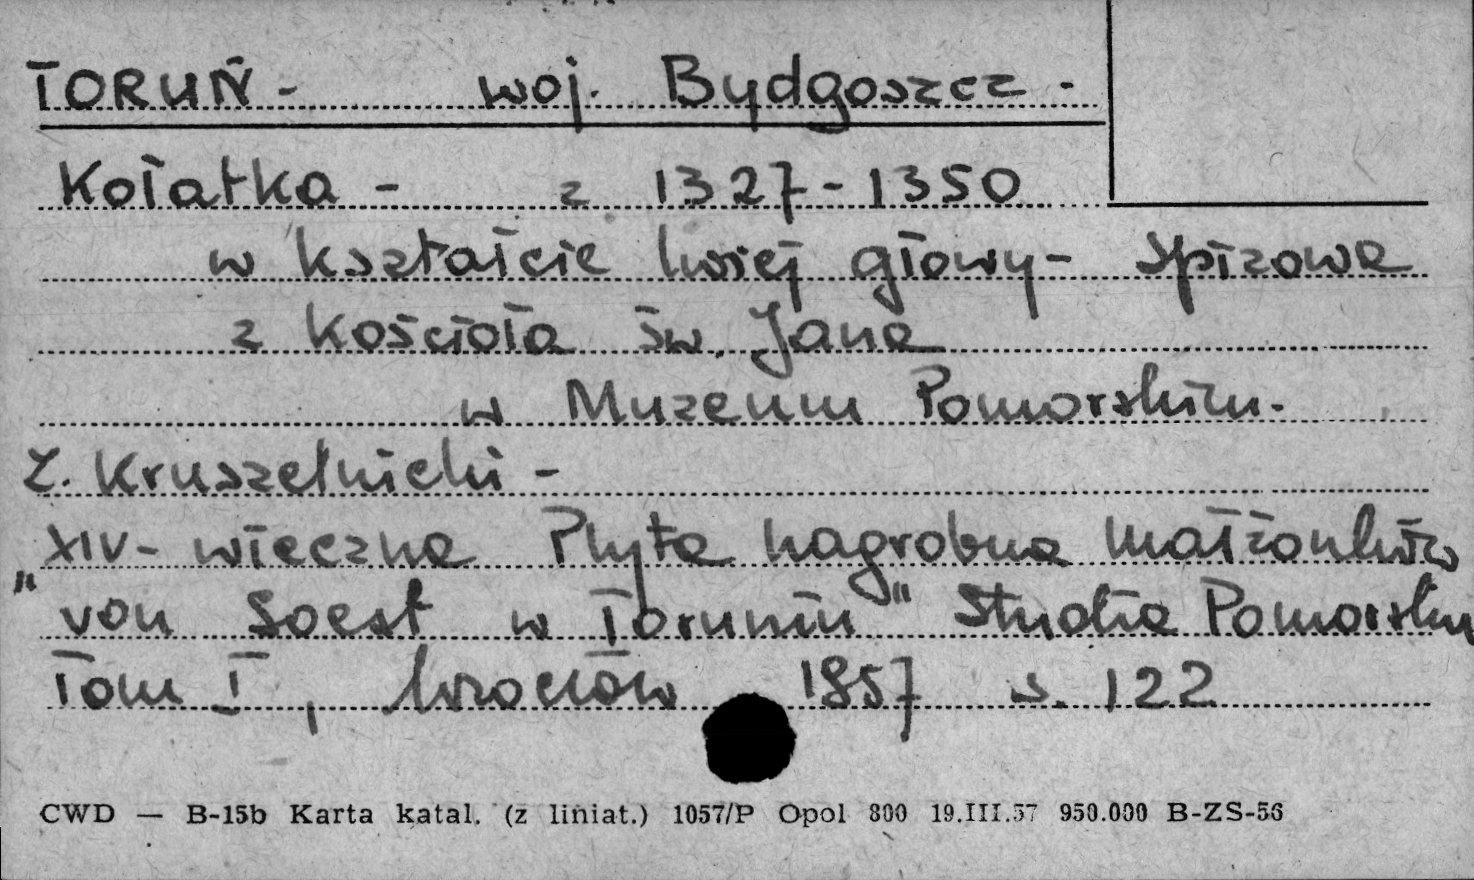 TORUŃ - woj. Bydgoszcz -
Kołatka - z 1327-1350
w kształcie lwiej głowy - spiżowa
z kościoła św. Jana
w Muzeum Pomorskim.
Z. Kruszelnicki -
"XIV-wieczna Płyta nagrobna małżonków
von Soest w Toruniu" Studia Pomorskie
Tom I, Wrocław 1957 s. 122
CWD — B-15b Karta katal. (z liniat.) 1057/P Opol 800 19.III.57 950.000 B-ZS-56